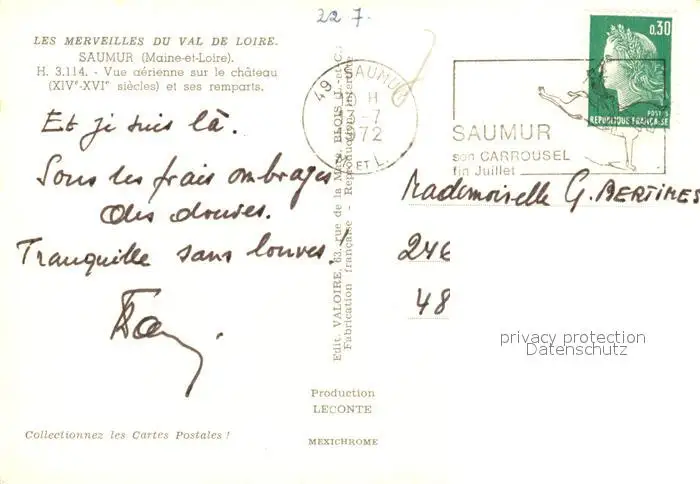 22 7.
LES MERVEILLES DU VAL DE LOIRE.
SAUMUR (Maine-et-Loire).
H. 3.114. - Vue aérienne sur le château
(XIVe-XVIe siècles) et ses remparts.
Et je suis là.
Sous les frais ombrages
des douves.
Tranquille sans louves !
Collectionnez les Cartes Postales !
Edit. VALOIRE, 63, rue de la BLOIS
Fabrication française - Reproduction interdite
Production
LECONTE
MEXICHROME
49 SAUMUR
H
3-7
1972
M. ET L.
SAUMUR
son CARROUSEL
fin Juillet
0,30
POSTES
REPUBLIQUE FRANÇAISE
Mademoiselle G. BERTINES
246
48
privacy protection
Datenschutz